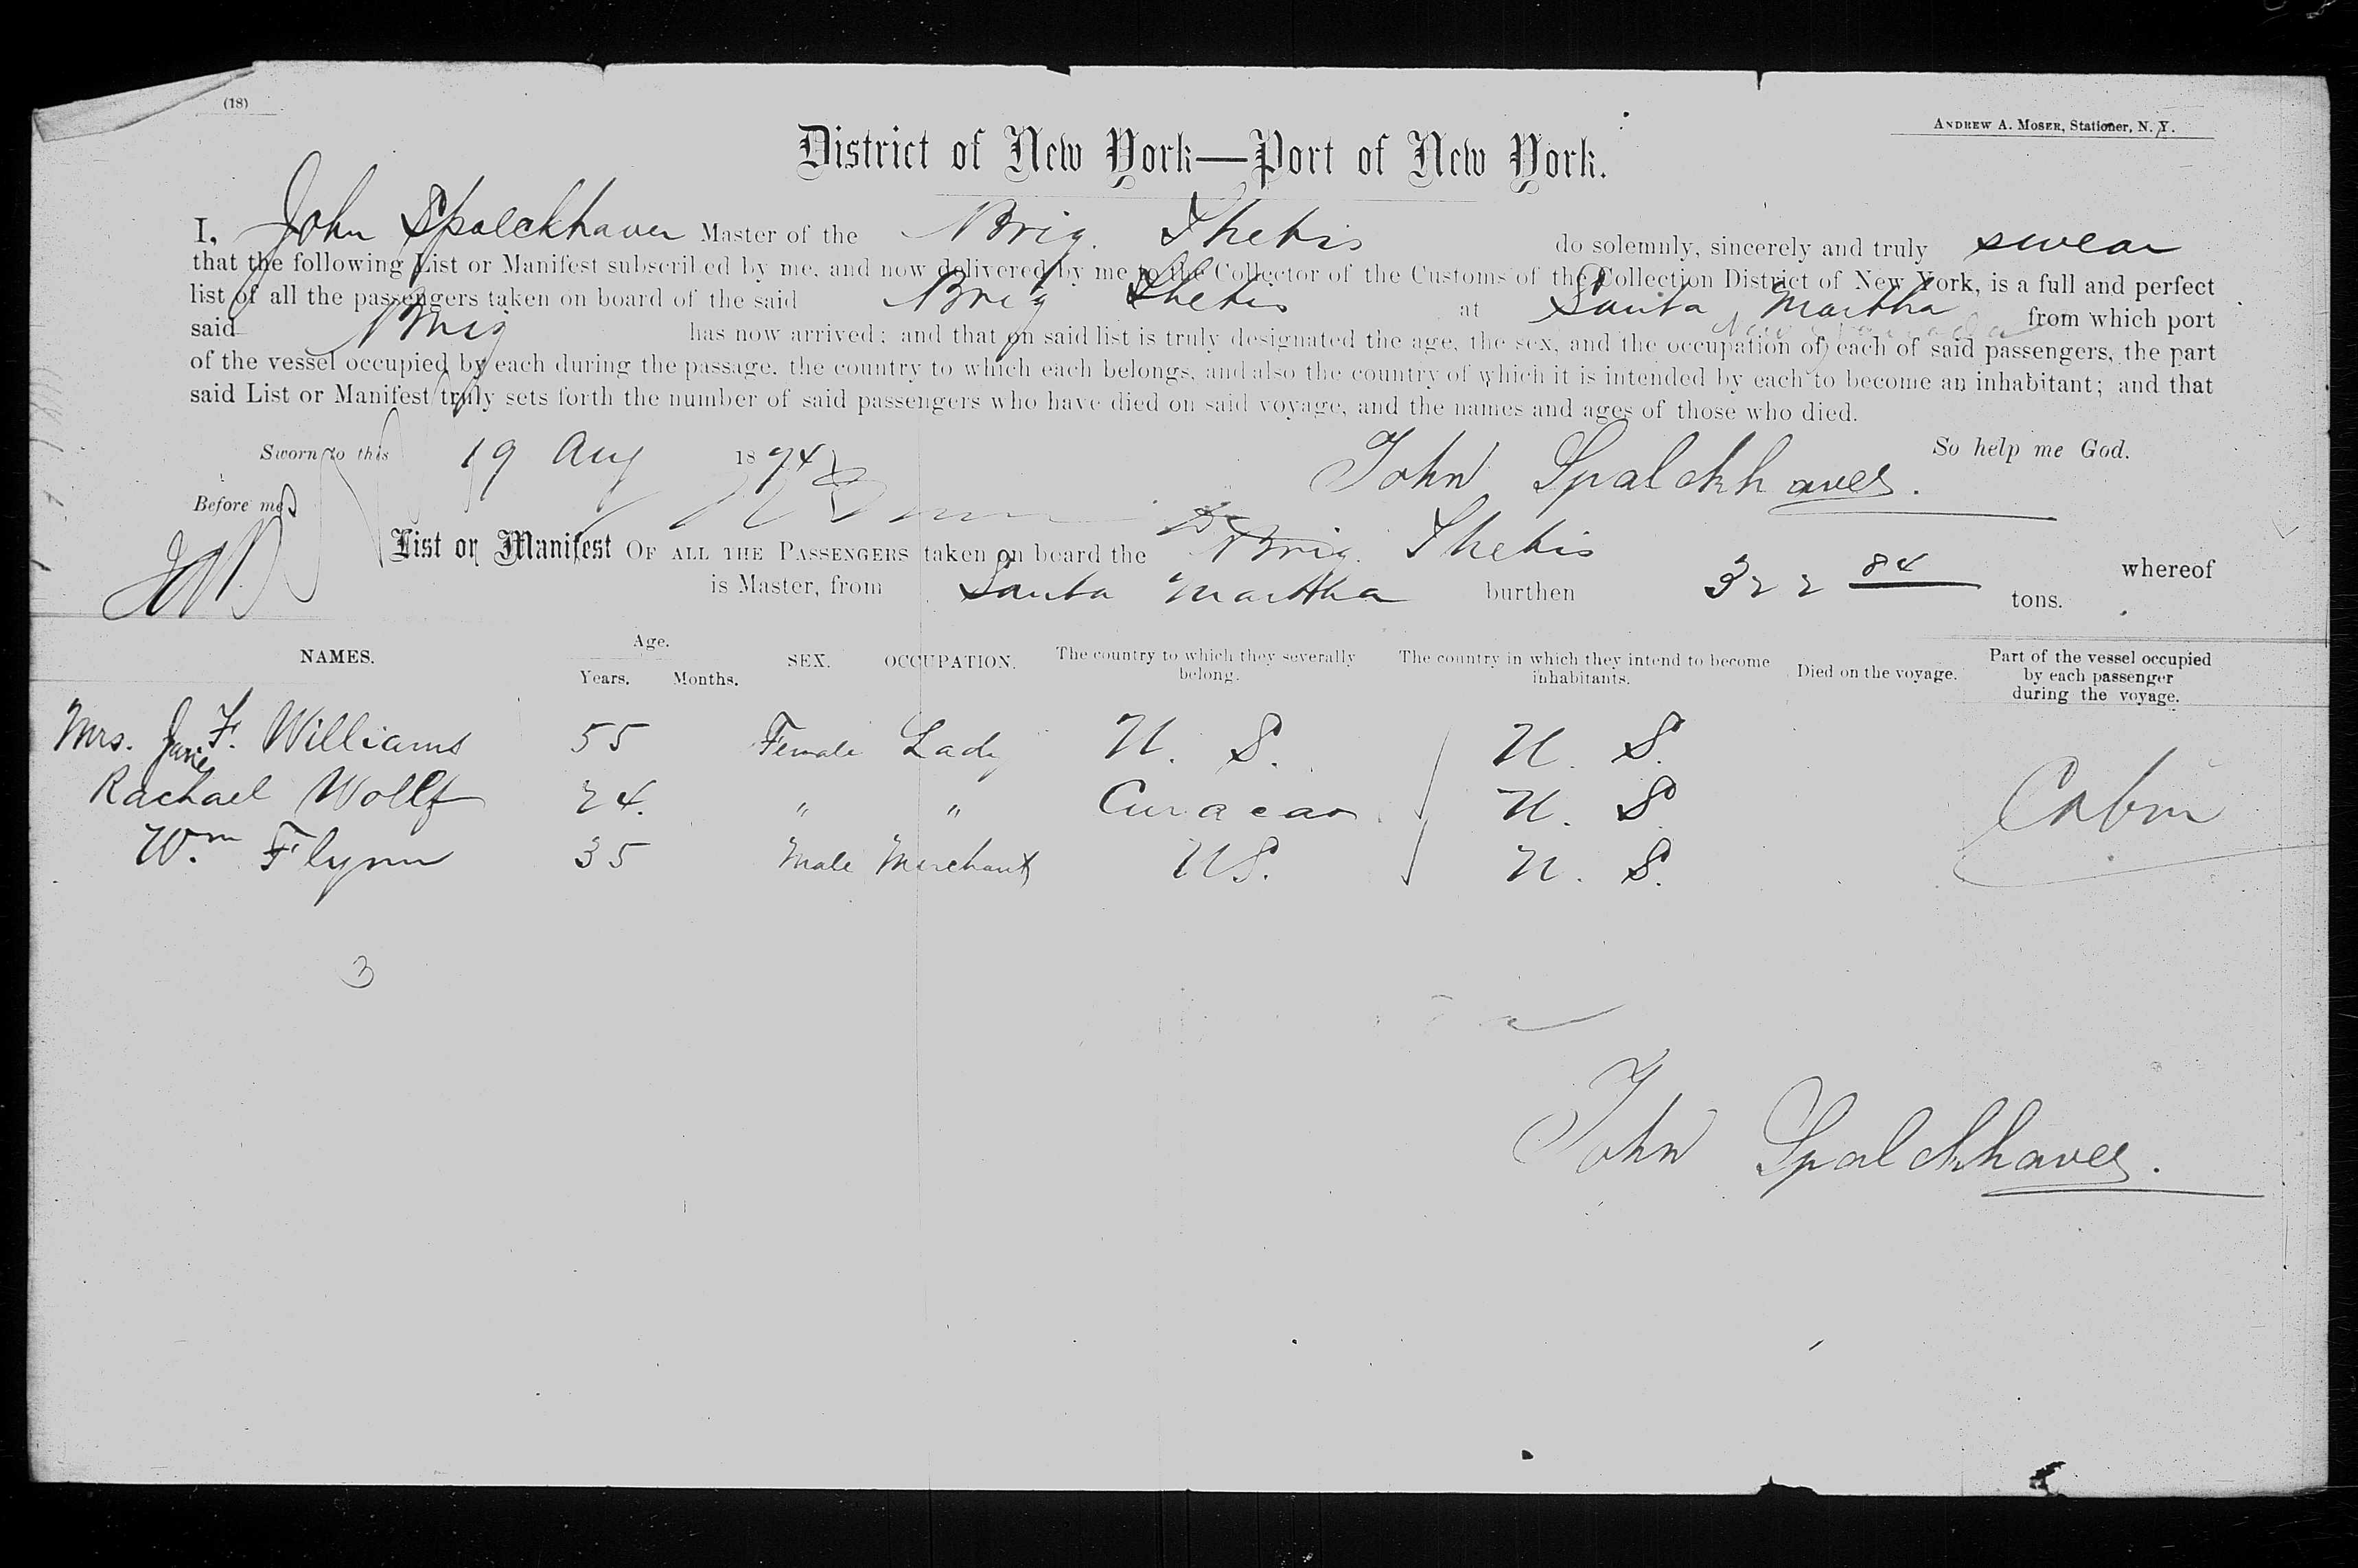 (18)
ANDREW A. MOSER, Stationer, N. Y.
District of New York—Port of New York.
I, John Spalckhaver Master of the Brig. Thetis do solemnly, sincerely and truly swear
that the following List or Manifest subscribed by me, and now delivered by me to the Collector of the Customs of the Collection District of New York, is a full and perfect
list of all the passengers taken on board of the said Brig Thetis at Santa Martha from which port
said Brig has now arrived; and that on said list is truly designated the age, the sex, and the occupation of each of said passengers, the part
of the vessel occupied by each during the passage, the country to which each belongs, and also the country of which it is intended by each to become an inhabitant; and that
said List or Manifest truly sets forth the number of said passengers who have died on said voyage, and the names and ages of those who died.
Sworn to this 19 Aug 1874 So help me God.
John Spalckhaver.
Before me
List or Manifest OF ALL THE PASSENGERS taken on board the Brig. Thetis whereof
is Master, from Santa Martha burthen 322 84 tons.
NAMES. Age. Years. Months. SEX. OCCUPATION. The country to which they severally belong. The country in which they intend to become inhabitants. Died on the voyage. Part of the vessel occupied by each passenger during the voyage.
Mrs. Jane F. Williams 55 Female Lady U. S. U. S.
Rachael Wolff 24. " " Curacao U. S. Cabin
Wm. Flynn 35 Male Merchant US. U. S.
3
John Spalckhaver.